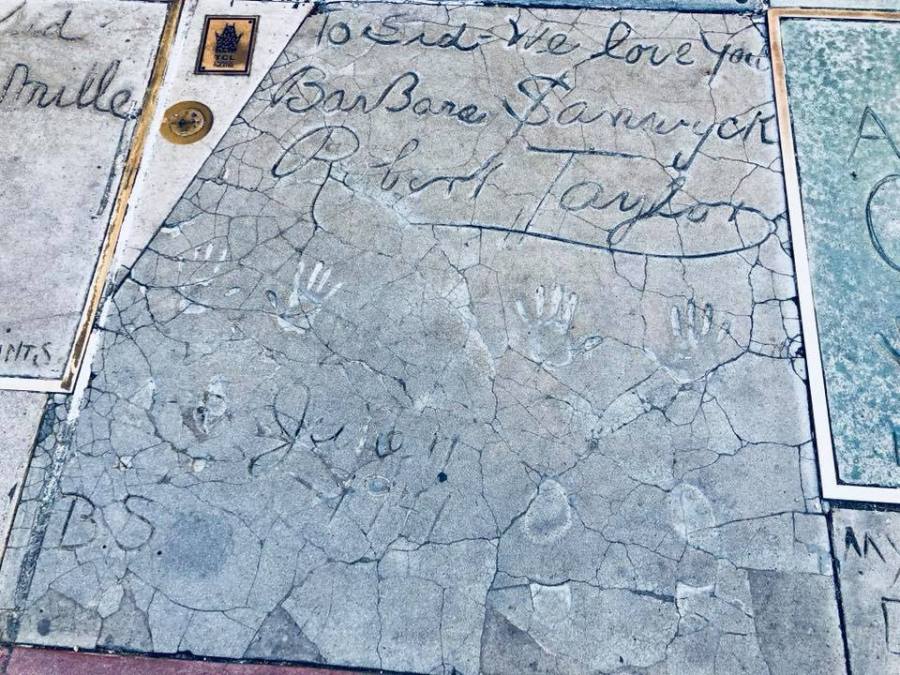 To Sid- We love you
BarBara Stanwyck
Robert Taylor
June 11
BS
TCL
Mille
MY